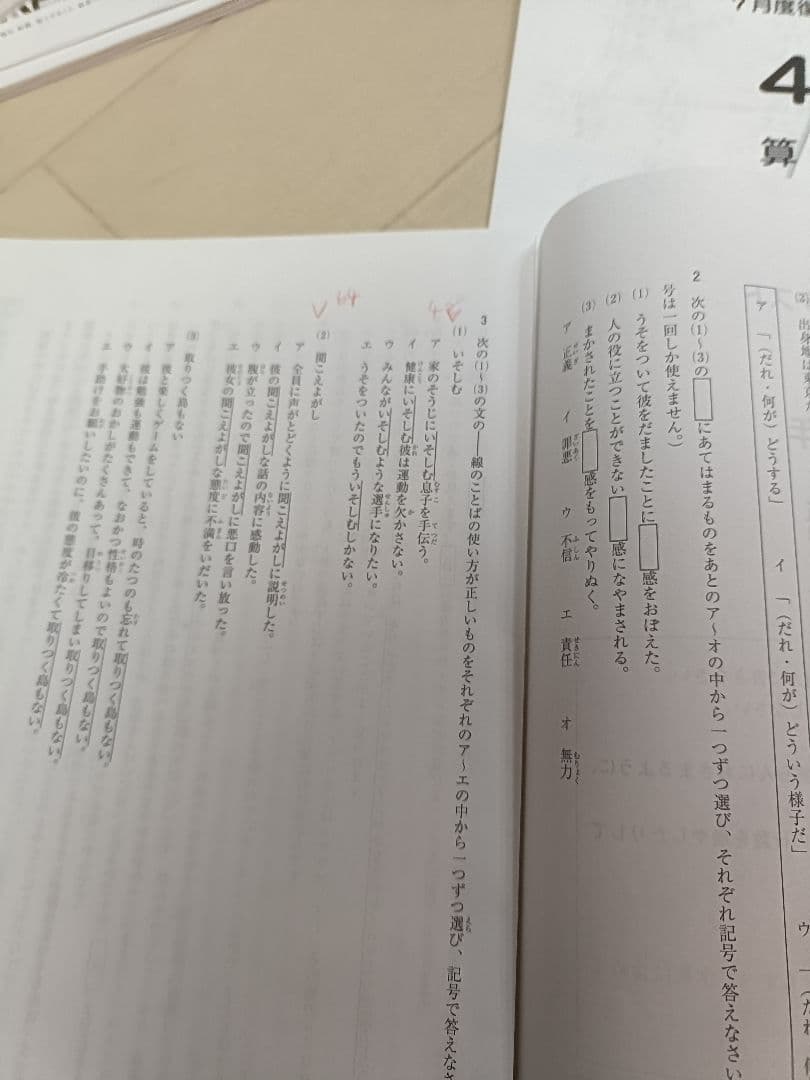 ７月度復
4
算
ア 「（だれ・何が）どうする」 イ 「（だれ・何が）どういう様子だ」 ウ
2 次の(1)～(3)の□にあてはまるものをあとのア～オの中から一つずつ選び、それぞれ記号で答えなさい
号は一回しか使えません。）
(1) うそをついて彼をだましたことに□感をおぼえた。
(2) 人の役に立つことができない□感になやまされる。
(3) まかされたことを□感をもってやりぬく。
ア 正義 イ 罪悪 ウ 不信 エ 責任 オ 無力
3 次の(1)～(3)の文の――線のことばの使い方が正しいものをそれぞれのア～エの中から一つずつ選び、記号で答えなさ
(1) いそしむ
ア 家のそうじにいそしむ息子を手伝う。
イ 健康にいそしむ彼は運動を欠かさない。
ウ みんながいそしむような選手になりたい。
エ うそをついたのでもういそしむしかない。
(2) 聞こえよがし
ア 全員に声がとどくように聞こえよがしに説明した。
イ 彼の聞こえよがしな話の内容に感動した。
ウ 腹が立ったので聞こえよがしに悪口を言い放った。
エ 彼女の聞こえよがしな態度に不満をいだいた。
(3) 取りつく島もない
ア 彼と楽しくゲームをしていると、時のたつのも忘れて取りつく島もない。
イ 彼は勉強も運動もできて、なおかつ性格もよいので取りつく島もない。
ウ 大好物のおかしがたくさんあって、目移りしてしまい取りつく島もない。
エ 手助けをお願いしたいのに、彼の態度が冷たくて取りつく島もない。